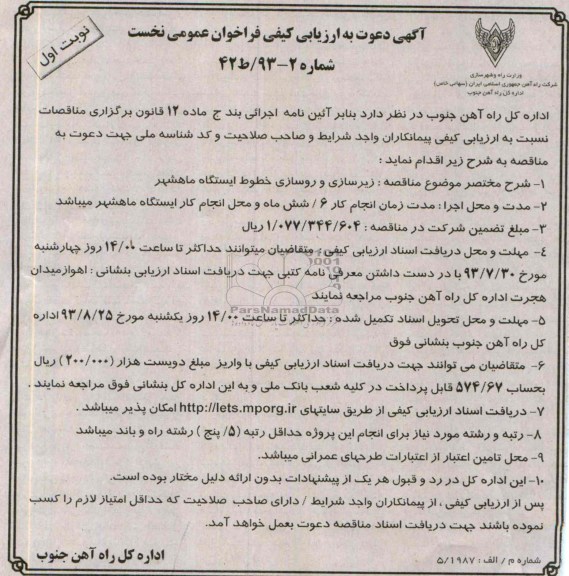 آگهی دعوت به ارزیابی کیفی فراخوان عمومی نخست
شماره ۲-۹۳/ط۴۲
نوبت اول
وزارت راه و شهرسازی
شرکت راه آهن جمهوری اسلامی ایران (سهامی خاص)
اداره کل راه آهن جنوب
اداره کل راه آهن جنوب در نظر دارد بنابر آئین نامه اجرائی بند ج ماده ۱۲ قانون برگزاری مناقصات
نسبت به ارزیابی کیفی پیمانکاران واجد شرایط و صاحب صلاحیت و کد شناسه ملی جهت دعوت به
مناقصه به شرح زیر اقدام نماید :
۱- شرح مختصر موضوع مناقصه : زیرسازی و روسازی خطوط ایستگاه ماهشهر
۲- مدت و محل اجرا : مدت زمان انجام کار ۶ / شش ماه و محل انجام کار ایستگاه ماهشهر میباشد
۳- مبلغ تضمین شرکت در مناقصه : ۱/۰۷۷/۳۴۴/۶۰۴ ریال
٤- مهلت و محل دریافت اسناد ارزیابی کیفی : متقاضیان میتوانند حداکثر تا ساعت ۱۴/۰۰ روز چهارشنبه
مورخ ۹۳/۷/۳۰ با در دست داشتن معرفی نامه کتبی جهت دریافت اسناد ارزیابی بنشانی : اهوازمیدان
هجرت اداره کل راه آهن جنوب مراجعه نمایند
ParsNamadData
۵- مهلت و محل تحویل اسناد تکمیل شده : حداکثر تا ساعت ۱۴/۰۰ روز یکشنبه مورخ ۹۳/۸/۲۵ اداره
کل راه آهن جنوب بنشانی فوق
۶- متقاضیان می توانند جهت دریافت اسناد ارزیابی کیفی با واریز مبلغ دویست هزار (۲۰۰/۰۰۰) ریال
بحساب ۵۷۴/۶۷ قابل پرداخت در کلیه شعب بانک ملی و به این اداره کل بنشانی فوق مراجعه نمایند .
۷- دریافت اسناد ارزیابی کیفی از طریق سایتهای http://lets.mporg.ir امکان پذیر میباشد .
۸- رتبه و رشته مورد نیاز برای انجام این پروژه حداقل رتبه (۵/ پنج ) رشته راه و باند میباشد
۹- محل تامین اعتبار از اعتبارات طرحهای عمرانی میباشد.
۱۰- این اداره کل در رد و قبول هر یک از پیشنهادات بدون ارائه دلیل مختار بوده است.
پس از ارزیابی کیفی ، از پیمانکاران واجد شرایط / دارای صاحب صلاحیت که حداقل امتیاز لازم را کسب
نموده باشند جهت دریافت اسناد مناقصه دعوت بعمل خواهد آمد.
اداره کل راه آهن جنوب
شماره م / الف : ۵/۱۹۸۷